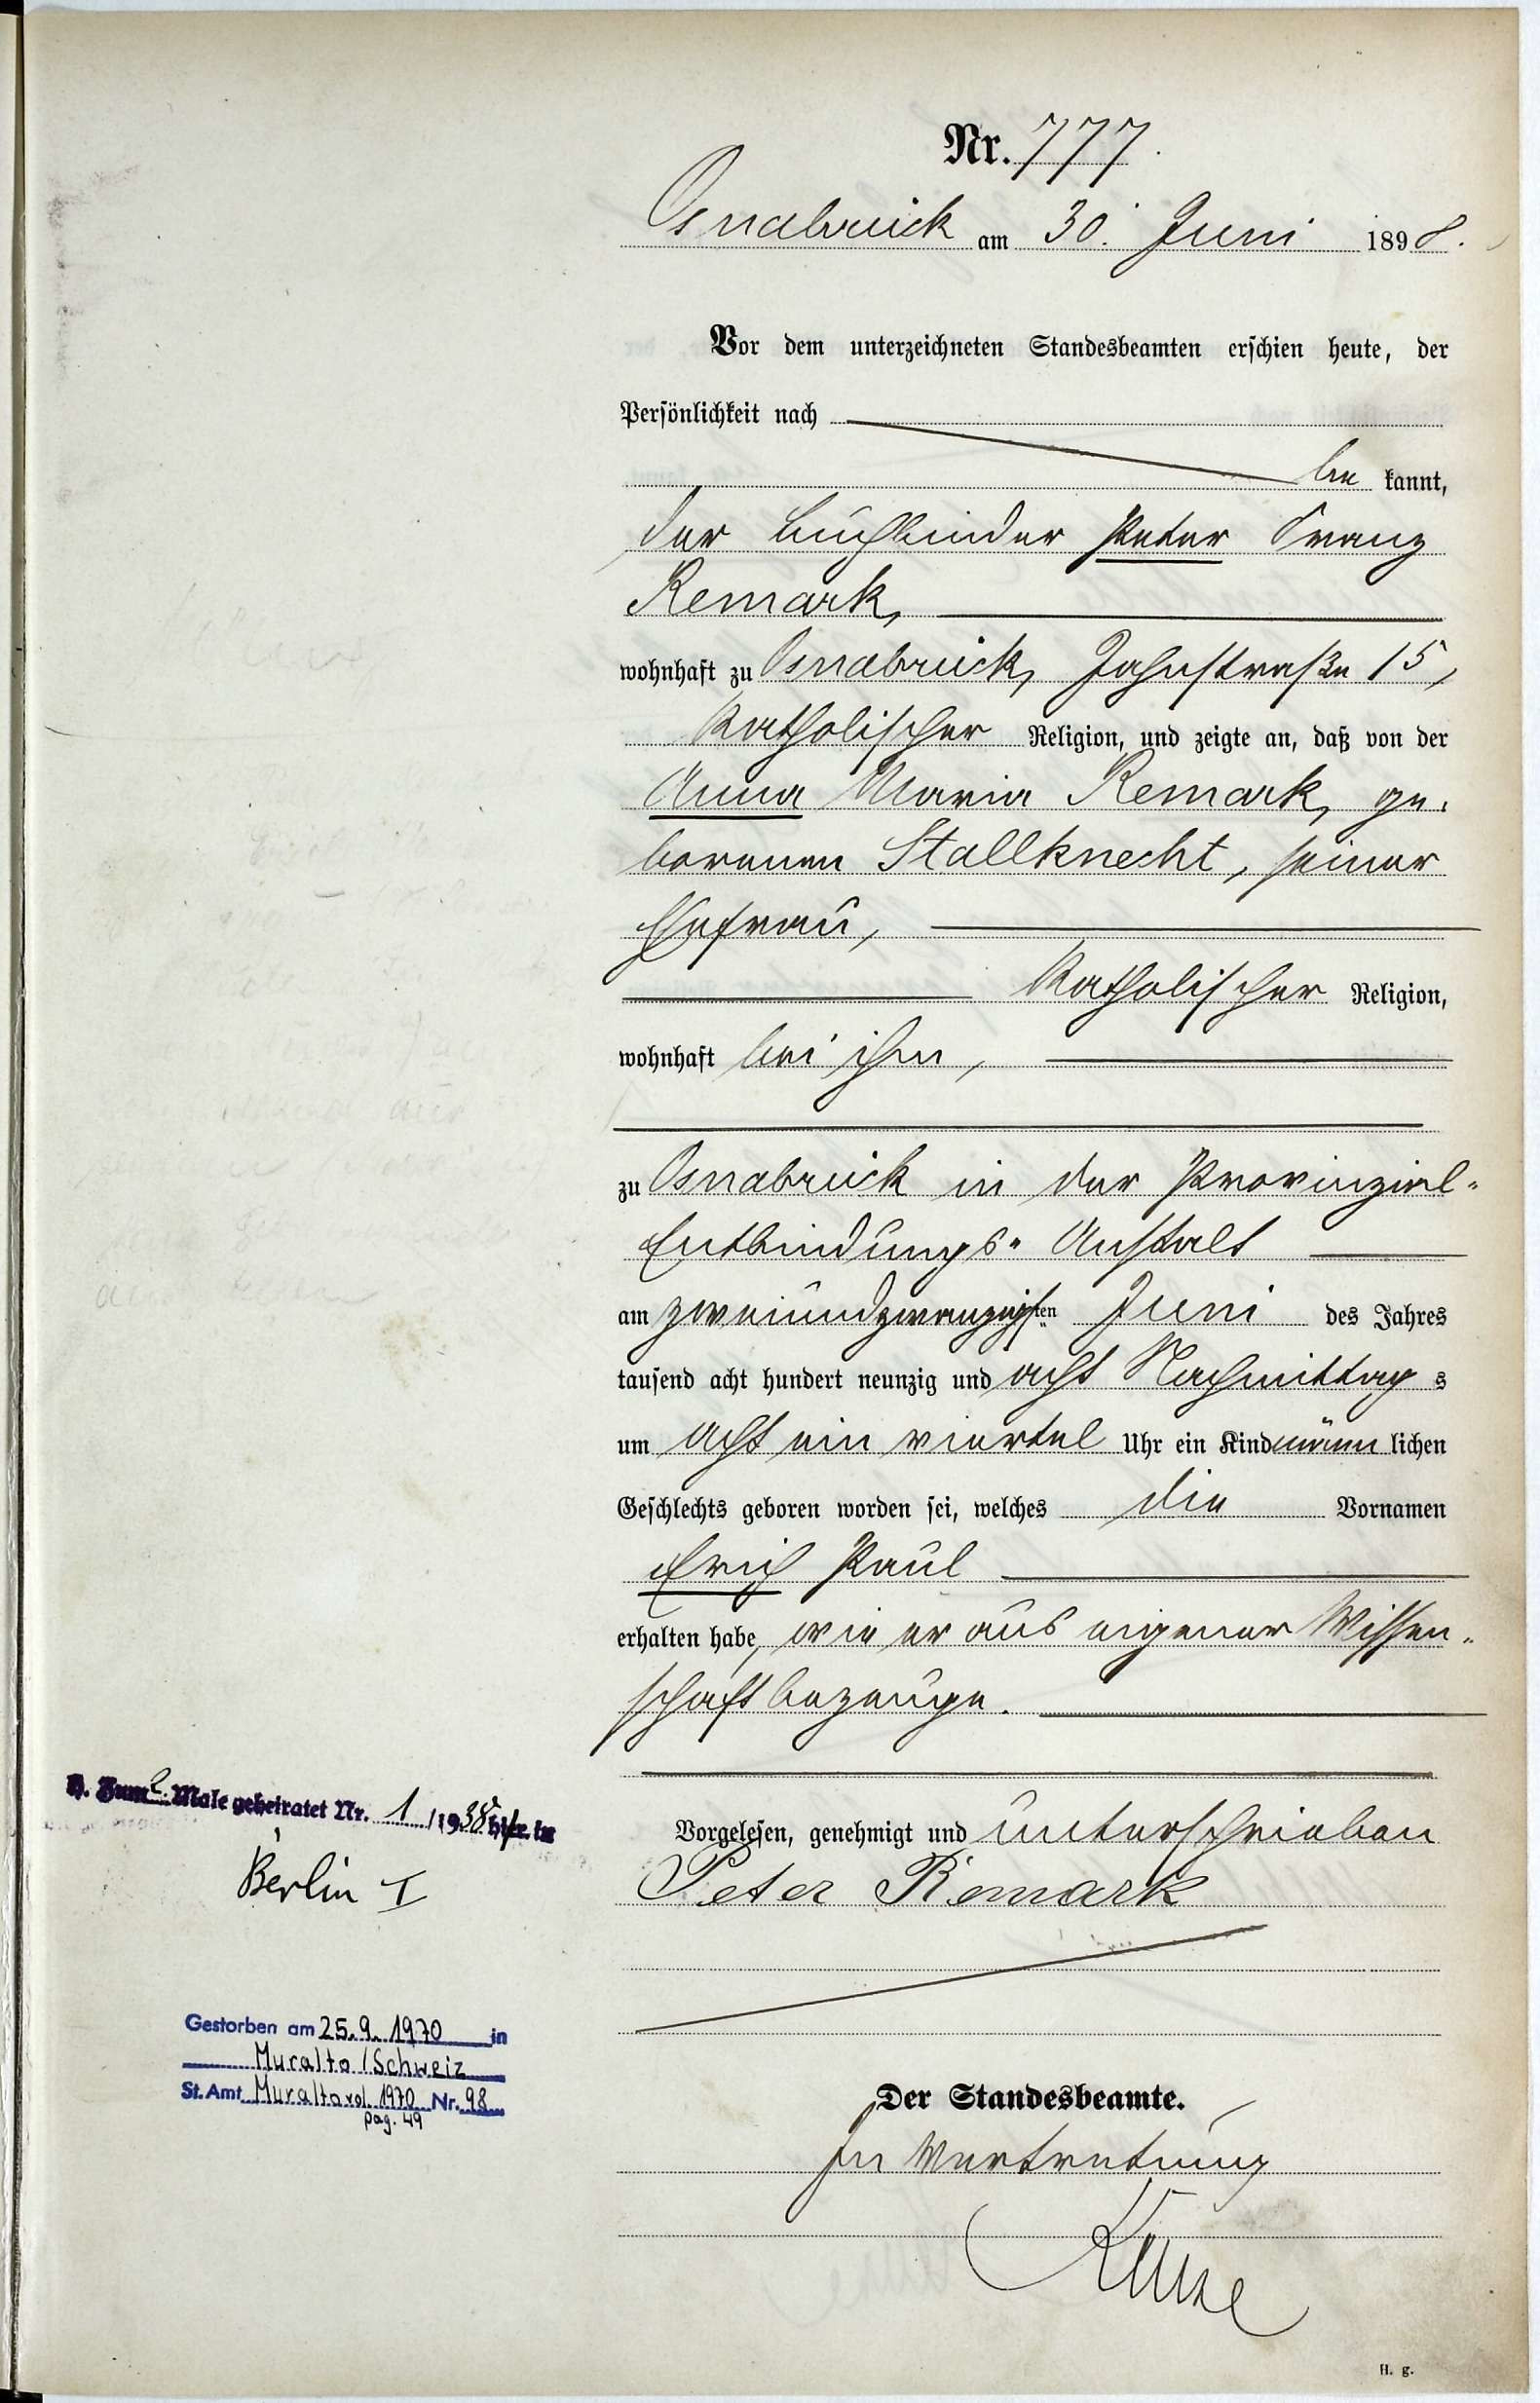 Nr. 777.
Osnabrück am 30. Juni 1898.
Vor dem unterzeichneten Standesbeamten erschien heute, der
Persönlichkeit nach
be kannt,
der Buchbinder Peter Franz
Remark,
wohnhaft zu Osnabrück, Jahnstraße 15,
katholischer Religion, und zeigte an, daß von der
Anna Maria Remark, ge-
borenen Stallknecht, seiner
Ehefrau,
katholischer Religion,
wohnhaft bei ihm,
zu Osnabrück in der Provinzial-
Entbindungs-Anstalt
am zweiundzwanzigsten Juni des Jahres
tausend acht hundert neunzig und acht Nachmittags
um acht ein viertel Uhr ein Kind männlichen
Geschlechts geboren worden sei, welches die Vornamen
Erich Paul
erhalten habe, wie er aus eigener Wissen-
schaft bezeuge.
Vorgelesen, genehmigt und unterschrieben
Peter Remark
Der Standesbeamte.
In Vertretung
H. g.
Zum 2. Male geheiratet Nr. 1 /1938 hier in
Berlin I
Gestorben am 25.9.1970 in
Muralto/Schweiz
St. Amt Muralto vol. 1970 Nr. 98
pag. 49